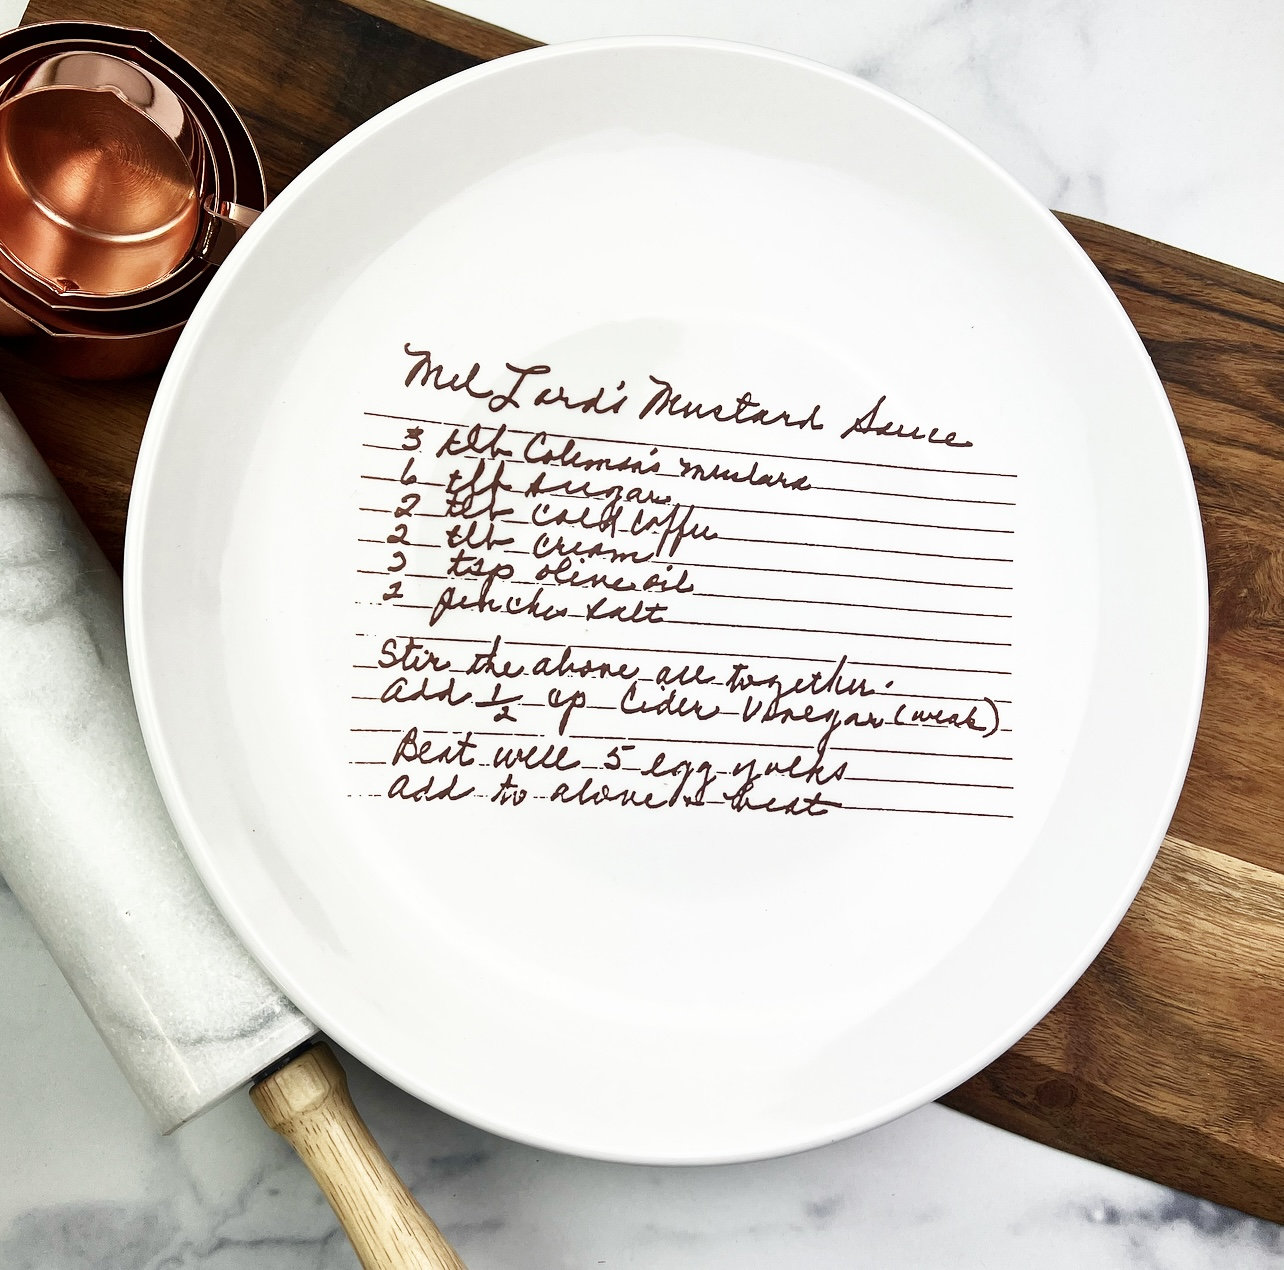 Mel Lard's Mustard Sauce
3 tlb Coleman's mustard
6 tlb sugar
2 tlb cold coffee
2 tlb cream
2 tsp olive oil
2 pinches salt
Stir the above all together.
add 1/2 cp Cider Vinegar (weak)
Beat well 5 egg yolks
add to above & heat